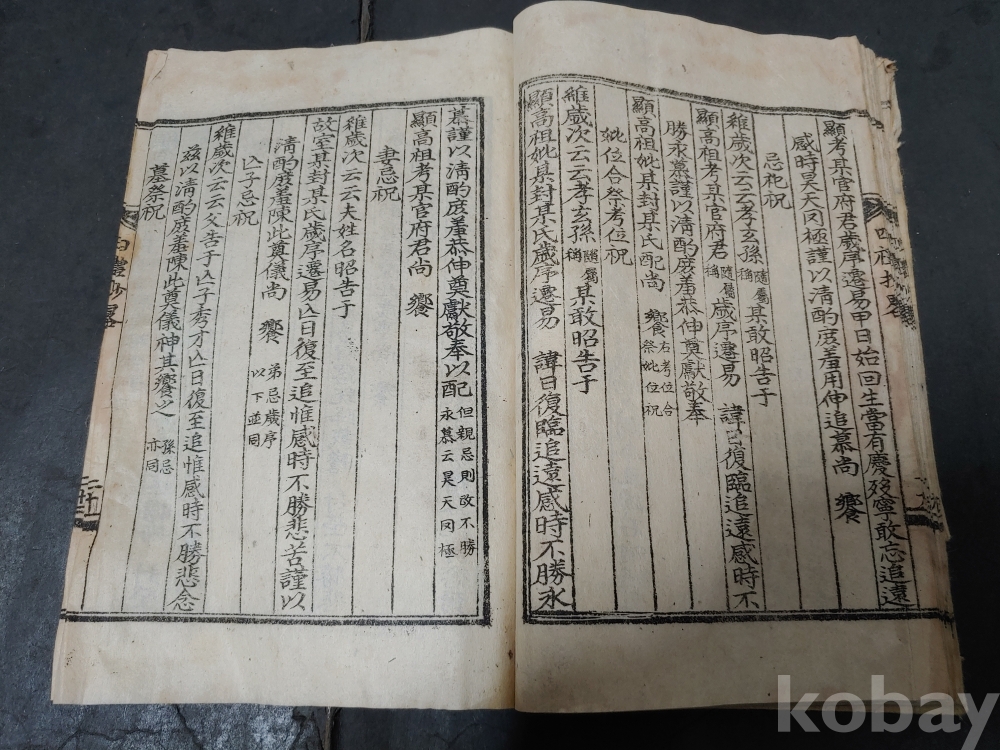 顯考某官府君歲序遷易甲日始回生當有慶歿寧敢忘追遠
感時昊天罔極謹以淸酌庶羞用伸追慕尙 饗
忌祀祝
維歲次云云孝玄孫隨屬稱某敢昭告于
顯高祖考某官府君隨屬稱歲序遷易 諱日復臨追遠感時不
勝永慕謹以淸酌庶羞恭伸奠獻敬奉
顯高祖妣某封某氏配尙 饗右考位合祭妣位祝
妣位合祭考位祝
維歲次云云孝玄孫隨屬稱某敢昭告于
顯高祖妣某封某氏歲序遷易 諱日復臨追遠感時不勝永
慕謹以淸酌庶羞恭伸奠獻敬奉以配但親忌則改不勝永慕云昊天罔極
顯高祖考某官府君尙 饗
妻忌祝
維歲次云云夫姓名昭告于
故室某封某氏歲序遷易亾日復至追惟感時不勝悲苦謹以
淸酌庶羞陳此奠儀尙 饗弟忌歲序以下並同
亾子忌祝
維歲次云云父告于亾子秀才亾日復至追惟感時不勝悲念
玆以淸酌庶羞陳此奠儀神其饗之孫忌亦同
墓祭祝
四禮抄畧
kobay